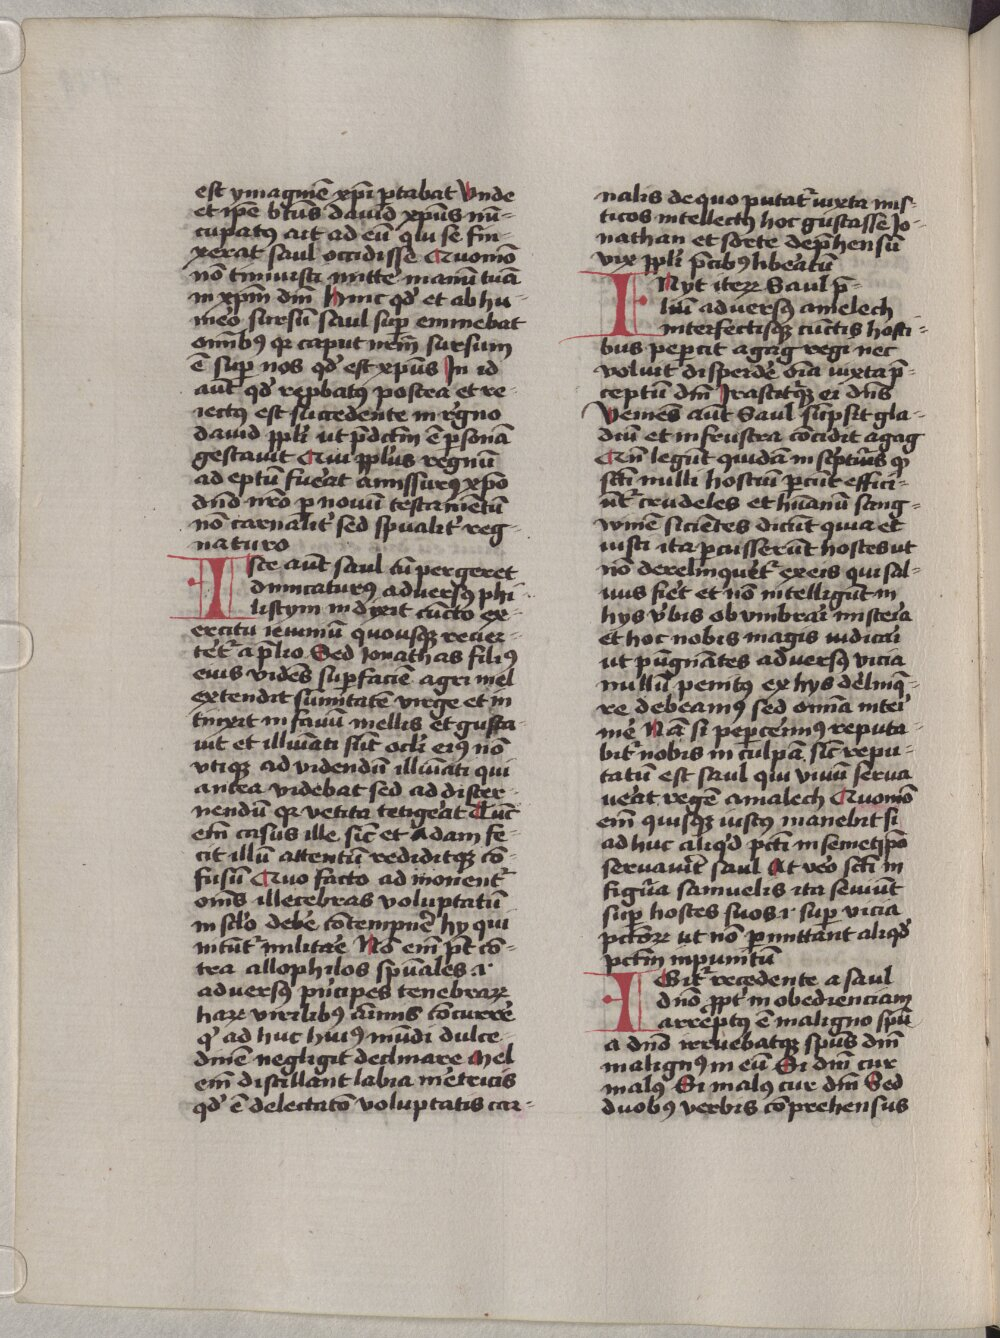 est ymaginē xp̄i p̄tabat Vnde
et ip̄e bt̄us dauid xp̄us nū-
cupatꝯ ait ad eū qui se fin-
xerat saul occidisse Quomō
nō timuisti mitte manū tuā
in xp̄m dn̄i Hinc qd̓ et ab hu-
meo sursū saul sup̄ eminebat
omībꝯ qꝛ caput nr̄m sursum
ē sup̄ nos qd̓ est xp̄us In id
aūt qd̓ rep̄batꝯ postea et re-
iectꝯ est succedente in regno
dauid pp̄li ut p̄dct̄m ē p̄sonā
gestauit Qui pp̄lus regnū
ad eptū fuerat amissurꝯ xp̄o
dn̄o nr̄o p nouū testamētū
nō carnalit̓ sed spūalit̓ reg-
naturo
Iste aūt saul cū pergeret
dimicaturꝯ aduersꝯ phi
listym indixit cūcto ex-
ercitu ieiuniū quousqꝫ reuer-
tet̓ a p̄lio Sed Jonathas filiꝯ
eius vidēs sup̄faciē agri mel
extendit sūmitatē virge et in
tinxit in fauū mellis et gusta
uit et illuīati sūt ocl̓i eiꝯ nō
vtiqꝫ ad videndū illuīati qui
antea videbat sed ad discer-
nendū qꝛ vetita tetigerat Tūc
em̄ casus ille sic̄ et Adam fe-
cit illū attentū rediditqꝫ cō-
fusū Quo facto ad monent̓
om̄s illecebras voluptatū
in sclō debē cōtempnē̓ hy qui
intūt̓ militare Nō em̄ pt̄ cō-
tra allophilos spūales ⁊
aduersꝯ pͥncipes tenebraꝝ
haꝝ virilibꝯ aīmis cōcurrē̓
qͥ ad huc huiꝯ mūdi dulce-
dinē negligit declinare Mel
em̄ distillant labia me̓tricis
qd̓ ē delectatō voluptatis car-
nalis de quo putat̓ iuxta mis-
ticos intellectꝯ hoc gustasse Jo-
nathan et sorte dep̄hensū
vix pp̄li p̄cibꝯ lib̓eatū
INyt iteꝝ Saul p̄-
liū aduersꝯ amelech
interfectisqꝫ cūctis hosti-
bus pepercit agag regi nec
voluit disperdē̓ oīa iuxta p̄-
ceptū dn̄i Irascit̓qꝫ ei dn̄s
Veniēs aūt Saul sūpsit gla-
diū et in frustra cōcidit agag
Qn̄ legūt quidā in scpt̓uris qꝫ
sct̄i nulli hostiū p̄cūt effici-
ūt̓ crudeles et hūanū sang-
winē sicientes dicūt quia et
iusti ita percusserūt hostes ut
nō derelinquēt̓ ex eis qui sal-
uus fiet et nō intelligūt in
hys v̓bis obumbrari misteria
et hoc nobis magis iudicari
ut pūgnātes aduersꝯ vicia
nullū penitꝯ ex hys de̓linq̄-
re debeamꝯ sed omīa intei
me Nā si pep̄cerimꝯ reputa-
bit̓ nobis in culpā sic̄ repu-
tatū est saul qui viuū serua-
uerat regē amalech Quomō
em̄ quisqꝫ iustꝯ manebit si
ad huc aliqd̓ pct̄i in semetip̄o
seruauerit saul At vero sct̄i in
figura samuelis ita seuiūt
sup̄ hostes suos ⁊ sup̄ vicia
pct̄oꝝ ut nō p̄mittant aliqd̓
pct̄m inpunitū
IGit̓ recedente a saul
dn̄o pp̄t̓ in obedienciam
arreptꝯ ē maligno spū
a dn̄o irruebatqꝫ spūs dn̄i
malignꝯ in eū Si dn̄i cur
malꝯ Si malꝯ cur dn̄i Sed
duobꝯ verbis cōprehensus